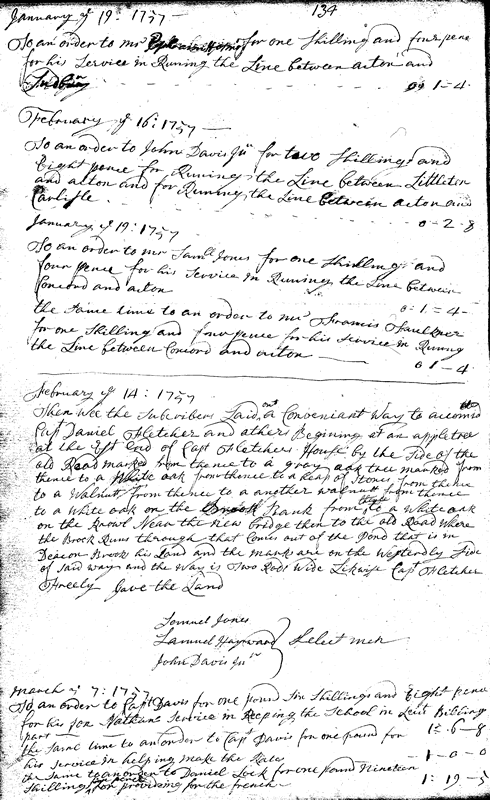 January ye 19: 1757 — 134
To an order to mr for one Shilling and four pence
for his Service in Runing the Line between acton and
Sudbury - - - 0= 1 = 4
February ye 16: 1757 —
To an order to John Davis Junr for two Shillings and
Eight pence for Runing the Line between Littleton
and acton and for Runing the Line between acton and
Carlisle - - - 0 - 2 - 8
January ye 19: 1757
To an order to mr Samll Jones for one Shilling and
four pence for his Service in Runing the Line between
Concord and acton - - - 0 = 1 = 4 -
the same time to an order to mr Francis Faulkner
for one Shilling and four pence for his Service in Runing
the Line between Concord and acton — 0 1 - 4
February ye 14: 1757
Then Wee the Subcribers Laid out a Conveniant Way to accomod
Capt Daniel Fletcher and athers Begining at an appletree
at the Est End of Capt Fletchers House by the Side of the
old Road marked from thence to a gray oak tree marked from
thence to a White oak from thence to a heap of Stones, from thence
to a Walnut from thence to a another walnutt from thence
to a White oak on the Bank from to a White oak
on the knowl Near the new bridge then to the old Road Where
the Brook Runs through that Comes out of the Pond that is in
Deacon Brooks his Land and the mark are on the Westerdly Side
of said way and the Way is Two Rods Wide Likwise Capt Fletcher
Freely Gave the Land
Somuel Jones
Samuel Hayward } Select men
John Davis Junr
march ye 7: 1757
To an order to Capt Davis for one pound Six Shillings and Eight pence
for his Son Nathan Service in Keeping the School in Leut Billings
part — 1=6-8
the Same time to an order to Capt Davis for one pound for
his Service in helping make the Rates - 1-0-0
the Same to an order to Daniel Lock for one pound Nineteen
Shillings for providing for the french 1: 19-5